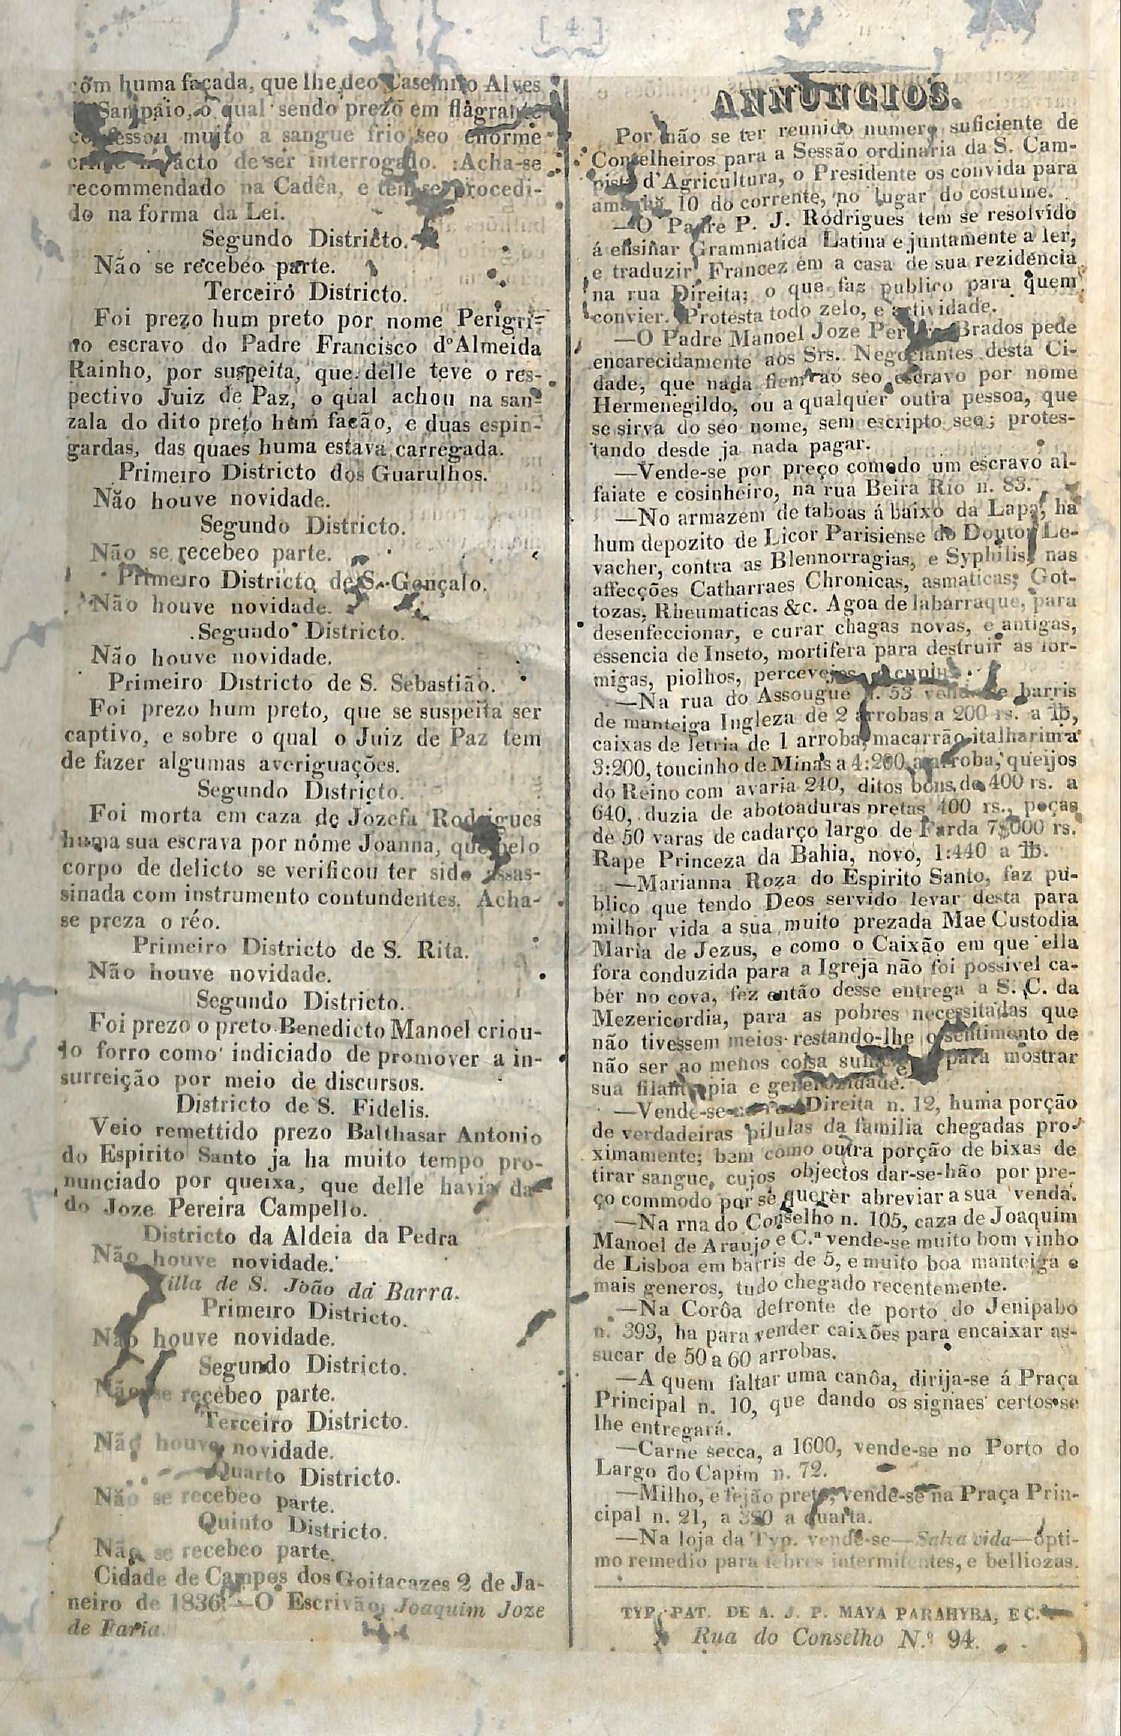 [ 4 ]
com huma façada, que lhe deo Casemiro Alves
Sampaio, o qual sendo prezo em flagrante
confessou muito a sangue frio seo enorme
crime acto de ser interrogado. Acha-se
recommendado na Cadêa, e tem-se procedi-
do na forma da Lei.
Segundo Districto.
Não se recebeo parte.
Terceiro Districto.
Foi prezo hum preto por nome Perigri-
no escravo do Padre Francisco d'Almeida
Rainho, por suspeita, que delle teve o res-
pectivo Juiz de Paz, o qual achou na san-
zala do dito preto hum facão, e duas espin-
gardas, das quaes huma estava carregada.
Primeiro Districto dos Guarulhos.
Não houve novidade.
Segundo Districto.
Não se recebeo parte.
Primeiro Districto de S. Gonçalo.
Não houve novidade.
Segundo Districto.
Não houve novidade.
Primeiro Districto de S. Sebastião.
Foi prezo hum preto, que se suspeita ser
captivo, e sobre o qual o Juiz de Paz tem
de fazer algumas averiguações.
Segundo Districto.
Foi morta em caza de Jozefa Rodrigues
huma sua escrava por nóme Joanna, que pelo
corpo de delicto se verificou ter sido assas-
sinada com instrumento contundentes. Acha-
se preza o réo.
Primeiro Districto de S. Rita.
Não houve novidade.
Segundo Districto.
Foi prezo o preto Benedicto Manoel criou-
lo forro como indiciado de promover a in-
surreição por meio de discursos.
Districto de S. Fidelis.
Veio remettido prezo Balthasar Antonio
do Espirito Santo ja ha muito tempo pro-
nunciado por queixa, que delle havia da-
do Joze Pereira Campello.
Districto da Aldeia da Pedra
Não houve novidade.
Villa de S. João da Barra.
Primeiro Districto.
Não houve novidade.
Segundo Districto.
Não se recebeo parte.
Terceiro Districto.
Não houve novidade.
Quarto Districto.
Não se recebeo parte.
Quinto Districto.
Não se recebeo parte.
Cidade de Campos dos Goitacazes 2 de Ja-
neiro de 1836.—O Escrivão, Joaquim Joze
de Faria.
ANNUNCIOS.
Por não se ter reunido numero suficiente de
Conselheiros para a Sessão ordinaria da S. Cam-
pista d'Agricultura, o Presidente os convida para
amanhã 10 do corrente, no lugar do costume.
—O Padre P. J. Rodrigues tem se resolvido
á ensinar Grammatica Latina e juntamente a ler,
e traduzir Francez em a casa de sua rezidencia
na rua Direita; o que faz publico para quem
convier. Protesta todo zelo, e actividade.
—O Padre Manoel Joze Brados pede
encarecidamente aos Srs. Negociantes desta Ci-
dade, que nada fiem ao seo escravo por nome
Hermenegildo, ou a qualquer outra pessoa, que
se sirva do seo nome, sem escripto seo; protes-
tando desde ja nada pagar.
—Vende-se por preço comodo um escravo al-
faiate e cosinheiro, na rua Beira Rio n. 83.
—No armazem de taboas á baixo da Lapa, ha
hum depozito de Licor Parisiense do Doutor Le-
vacher, contra as Blennorragias, e Syphilis, nas
affecções Catharraes Chronicas, asmaticas, Got-
tozas, Rheumaticas &c. Agoa de labarraque, para
desenfeccionar, e curar chagas novas, e antigas,
essencia de Inseto, mortifera para destruir as for-
migas, piolhos, percevejos, e cupins.
—Na rua do Assougue n. 53 vende-se barris
de manteiga Ingleza de 2 arrobas a 200 rs. a lb,
caixas de letria de 1 arroba, macarrão, italharim a
3:200, toucinho de Minas a 4:260 a arroba, queijos
do Reino com avaria 240, ditos bons, de 400 rs. a
640, duzia de abotoaduras pretas 400 rs., peças
de 50 varas de cadarço largo de Farda 7$000 rs.
Rape Princeza da Bahia, novo, 1:440 a lb.
—Marianna Roza do Espirito Santo, faz pu-
blico que tendo Deos servido levar desta para
milhor vida a sua muito prezada Mae Custodia
Maria de Jezus, e como o Caixão em que ella
fora conduzida para a Igreja não foi possivel ca-
ber no cova, fez então desse entrega a S. C. da
Mezericordia, para as pobres necessitadas que
não tivessem meios restando-lhe o sentimento de
não ser ao menos coisa para mostrar
sua filantropia e generozidade.
—Vende-se Direita n. 12, huma porção
de verdadeiras pilulas da familia chegadas pro-
ximamente; bem como outra porção de bixas de
tirar sangue, cujos objectos dar-se-hão por pre-
ço commodo por se querer abreviar a sua venda.
—Na rna do Conselho n. 105, caza de Joaquim
Manoel de Araujo e C.ª vende-se muito bom vinho
de Lisboa em barris de 5, e muito boa manteiga e
mais generos, tudo chegado recentemente.
—Na Corôa defronte de porto do Jenipabo
n. 393, ha para vender caixões para encaixar as-
sucar de 50 a 60 arrobas.
—A quem faltar uma canôa, dirija-se á Praça
Principal n. 10, que dando os signaes certos se
lhe entregará.
—Carne secca, a 1600, vende-se no Porto do
Largo do Capim n. 72.
—Milho, e fejão preto, vende-se na Praça Prin-
cipal n. 21, a 320 a quarta.
—Na loja da Typ. vende-se—Salva vida—opti-
mo remedio para febres intermitentes, e belliozas.
TYP. PAT. DE A. J. P. MAYA PARAHYBA, E C.
Rua do Conselho N.º 94.